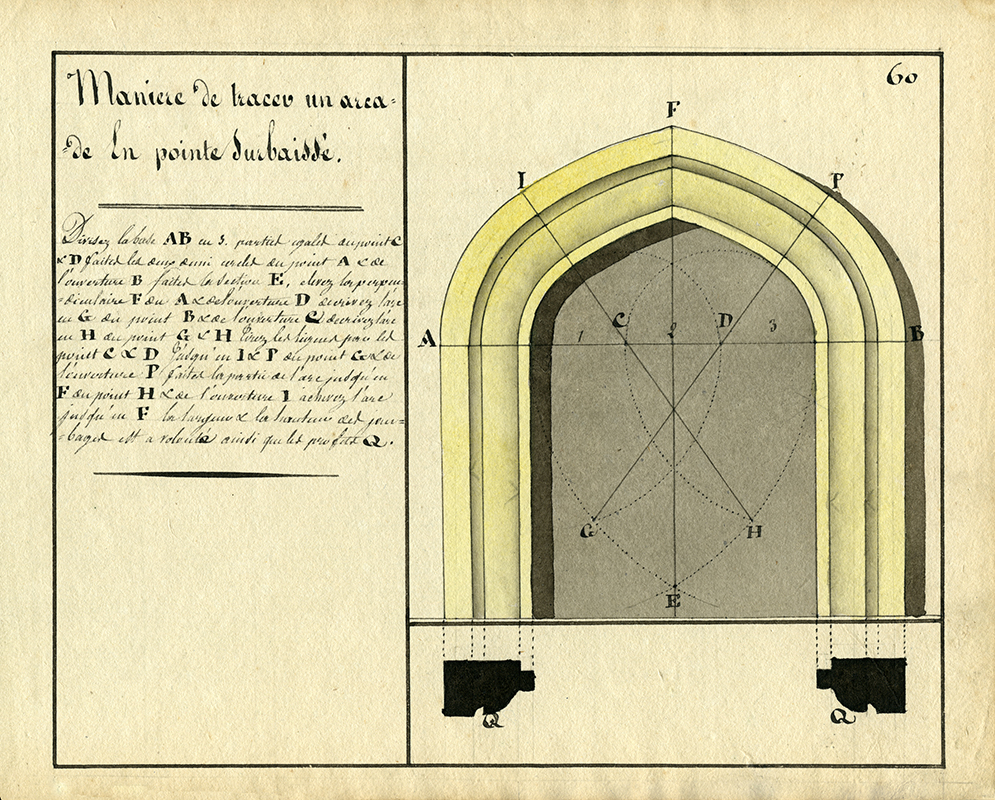 60
Maniere de tracer un arca=
=de En pointe Surbaissé.
Divisez la base AB en 3. parties egales au point C
& D faites les deux demi cercles du point A & de
l'ouverture B faites la section E, elevez la perpen
=diculaire F du A & de l'ouverture D decrivez l'arc
en G du point B & de l'ouverture C decrivez l'arc
en H du point G & H tirez les lignes par les
point C & D jusqu'en I & P du point G & de
l'ouverture P faites la partie de l'arc jusqu'en
F du point H & de l'ouverture I achevez l'arc
jusqu'en F la largeur & la hauteur des jam=
=bages est a volonté ainsi que les profils Q.
F
I P
A 1 C 2 D 3 B
G H
E
Q Q